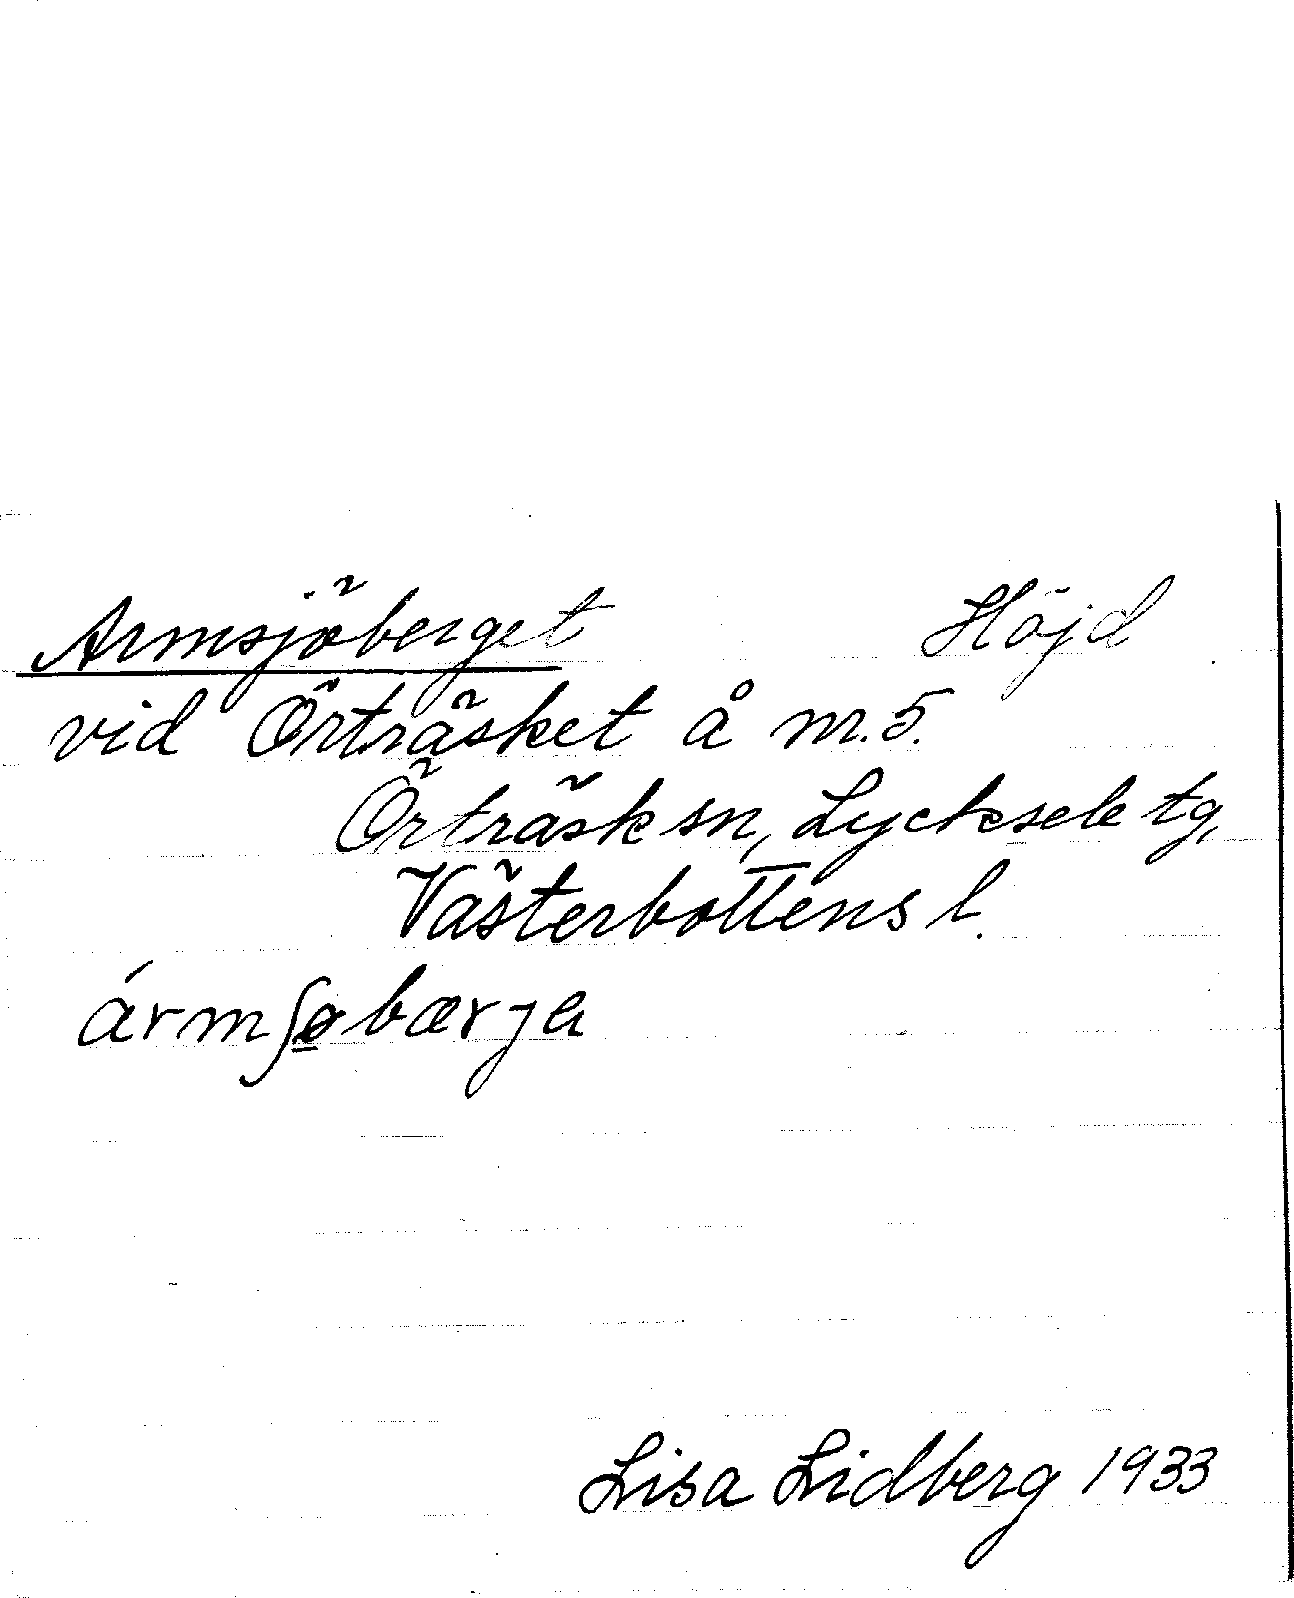 Armsjöberget Höjd
vid Örträsket å nr. 5.
Örträsk sn, Lycksele tg,
Västerbottens l.
ármʃøbærja
Lisa Lidberg 1933